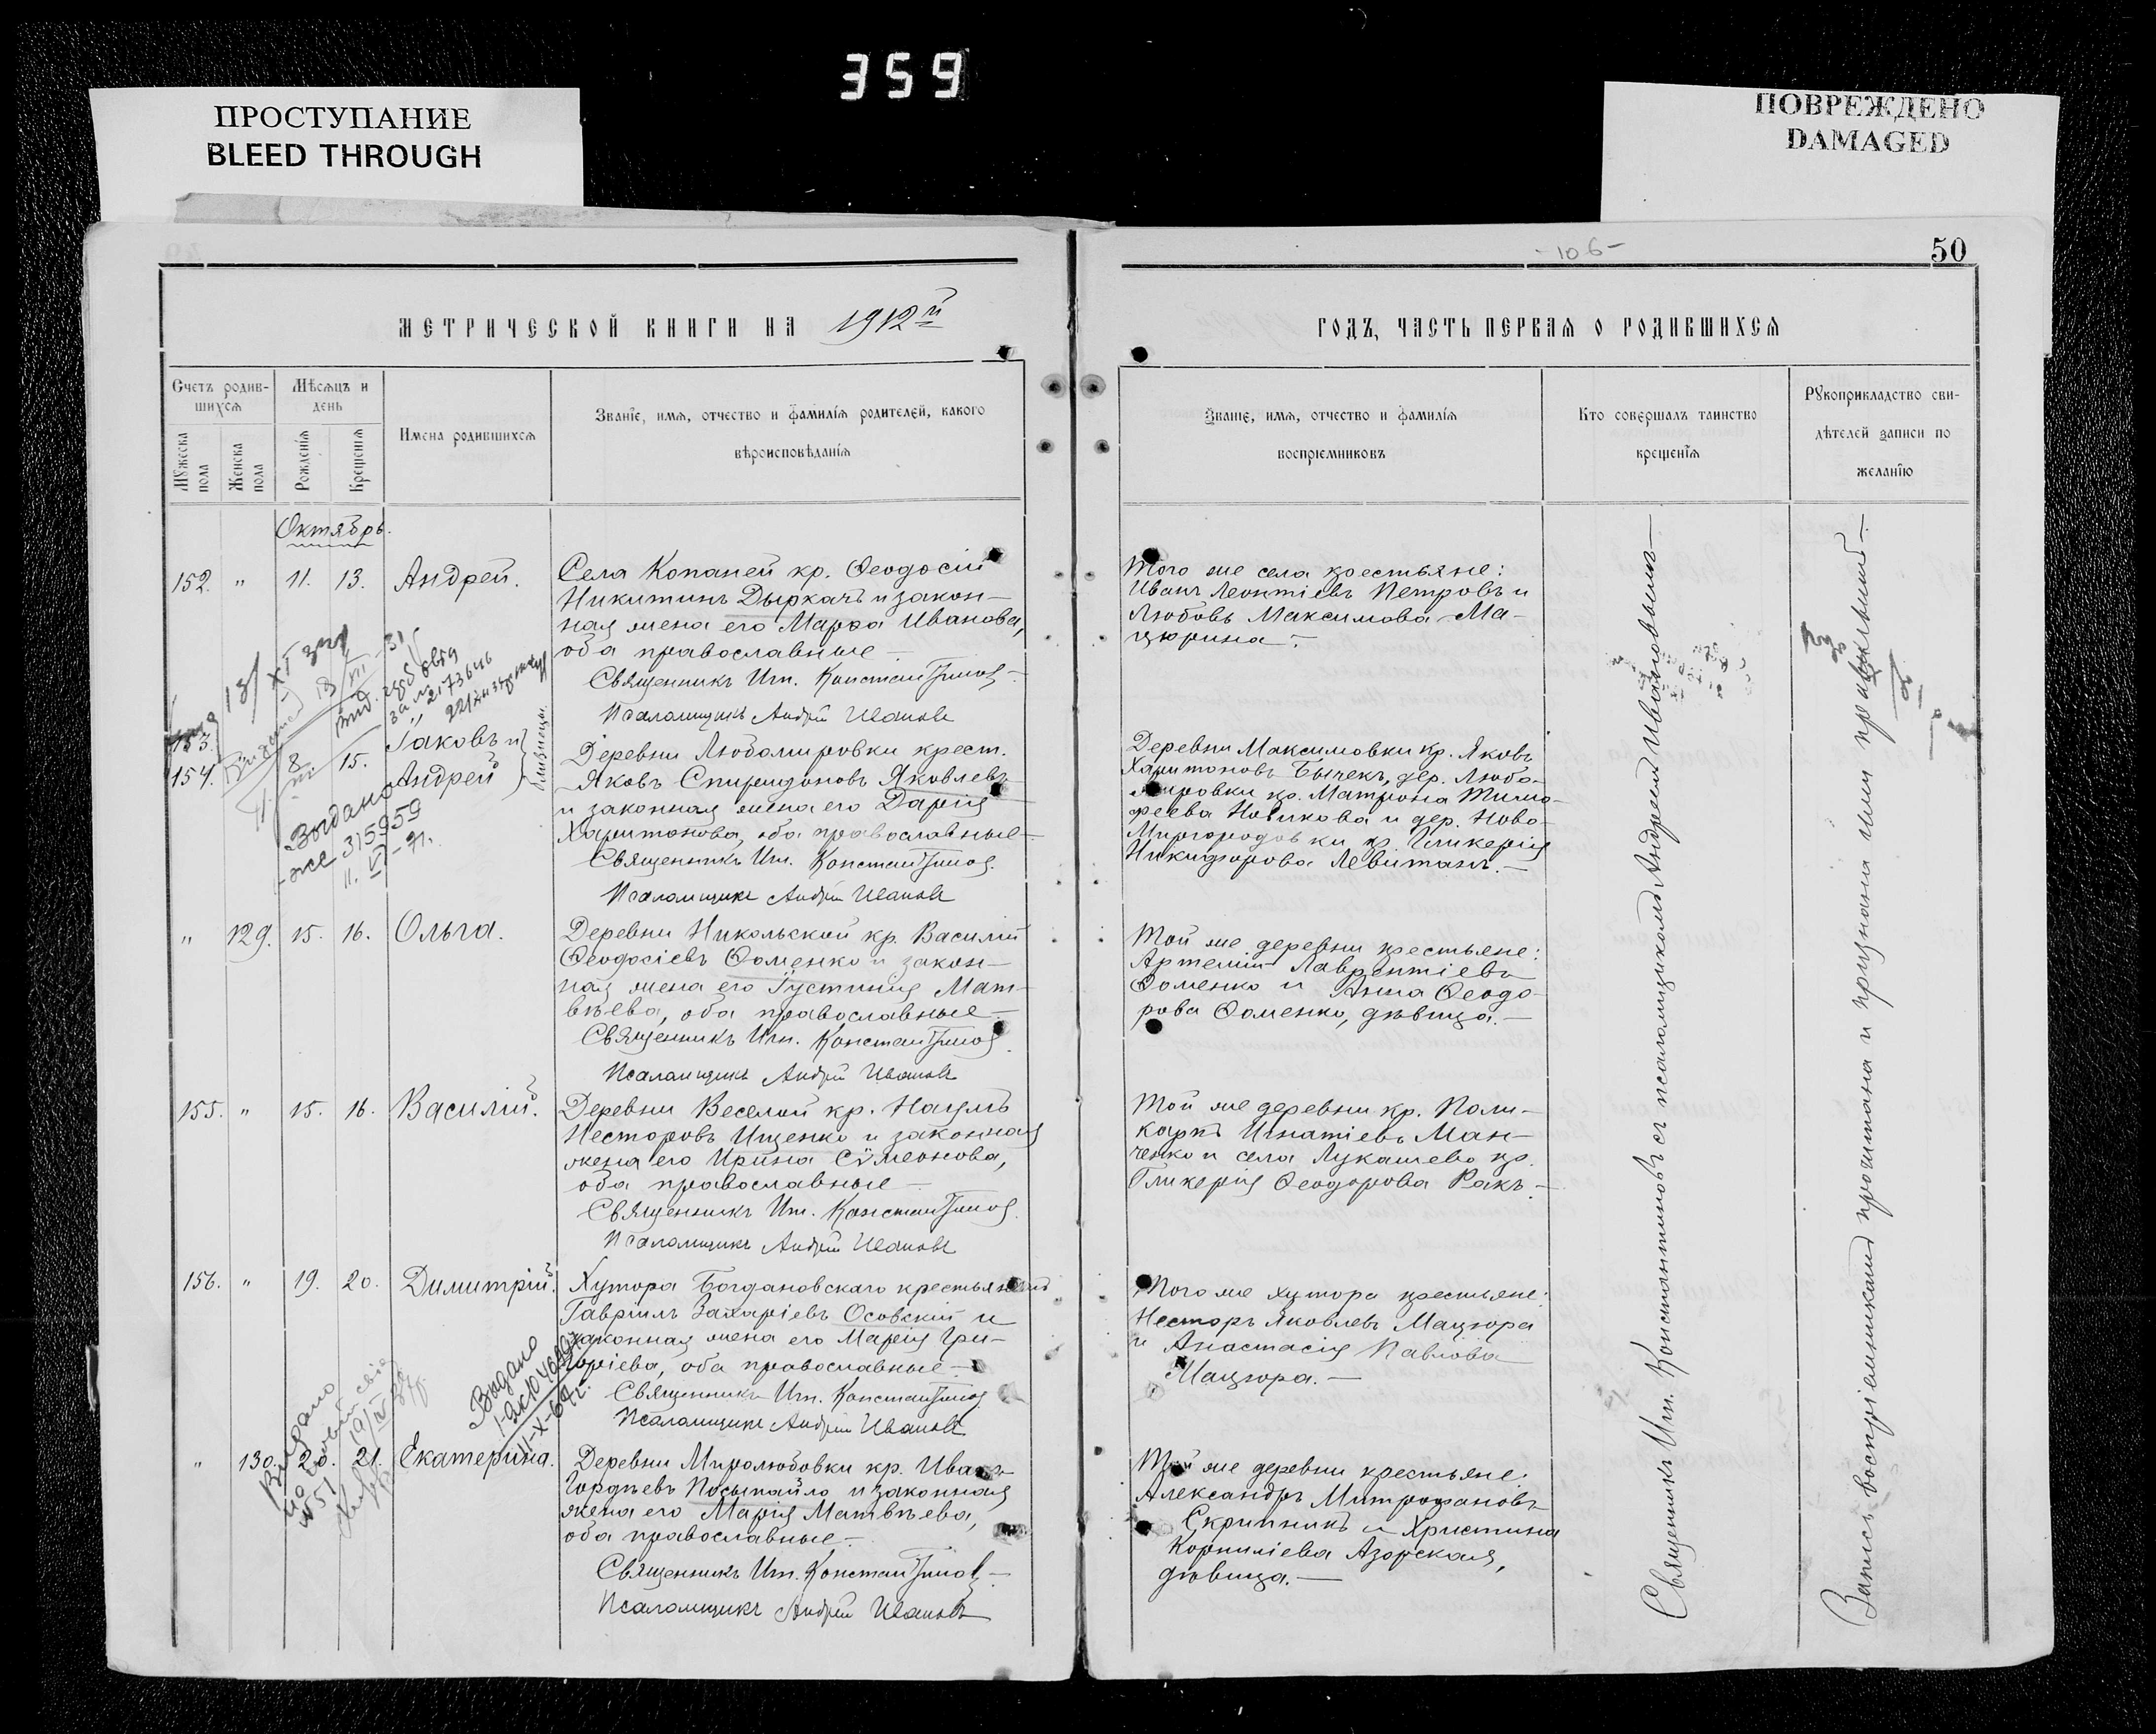 359
ПРОСТУПАНИЕ
BLEED THROUGH
ПОВРЕЖДЕНО
DAMAGED
-106-
50
МЕТРИЧЕСКОЙ КНИГИ НА 1912й
ГОДЪ, ЧАСТЬ ПЕРВАЯ О РОДИВШИХСЯ
Счетъ родив-
шихся
Мѣсяцъ и
день
Мужеска
пола
Женска
пола
Рожденія
Крещенія
Имена родившихся
Званіе, имя, отчество и фамилія родителей, какого
вѣроисповѣданія
Званіе, имя, отчество и фамилія
воспріемниковъ
Кто совершалъ таинство
крещенія
Рукоприкладство сви-
дѣтелей записи по
желанію
Октябрь.
152. " 11. 13. Андрей.
Села Копаней кр. Ѳеодосій
Никитинъ Дыркачъ и закон-
ная жена его Марѳа Иванова,
оба православные –
Священникъ Ип. Константиновъ –
Псаломщикъ Андрей Ивановъ
Того же села крестьяне:
Иванъ Леонтіевъ Петровъ и
Любовь Максимова Ма-
цюрина –
153.
154. 8 15. Іаковъ и
Андрей } близнецы.
Выдано
315959
11. VI – 71.
Деревни Любомировки крест.
Яковъ Спиридоновъ Яковлевъ
и законная жена его Дарія
Харитонова, оба православные –
Священникъ Ип. Константиновъ.
Псаломщикъ Андрей Ивановъ
Деревни Максимовки кр. Яковъ
Харитоновъ Бычекъ, дер. Любо-
мировки кр. Матрона Тимо-
феева Новикова и дер. Ново-
Миргородовки кр. Гликерія
Никифорова Левитанъ. –
" 129. 15. 16. Ольга.
Деревни Никольской кр. Василій
Ѳеодосіевъ Ѳоменко и закон-
ная жена его Іустинія Мат-
вѣева, оба православные –
Священникъ Ип. Константиновъ.
Псаломщикъ Андрей Ивановъ
Той же деревни крестьяне:
Артемій Лаврентіевъ
Ѳоменко и Анна Ѳеодо-
рова Ѳоменко, дѣвица. –
155. " 15. 16. Василій.
Деревни Веселой кр. Наумъ
Несторовъ Ищенко и законная
жена его Ирина Сѵмеонова,
оба православные –
Священникъ Ип. Константиновъ.
Псаломщикъ Андрей Ивановъ
Той же деревни кр. Поли-
карпъ Игнатіевъ Ман-
ченко и села Лукашево кр.
Гликерія Ѳеодорова Ракъ. –
156. " 19. 20. Димитрій.
Хутора Богдановскаго крестьянинъ
Гавріилъ Захаріевъ Осовскій и
законная жена его Марія Гри-
горіева, оба православные –
Священникъ Ип. Константиновъ
Псаломщикъ Андрей Ивановъ
Того же хутора крестьяне:
Несторъ Яковлевъ Мацюра
и Анастасія Павлова
Мацюра. –
Выдано
11-X-69г.
" 130. 20. 21. Екатерина.
Деревни Миролюбовки кр. Иванъ
Гордѣевъ Посыпайло и законная
жена его Марія Матвѣева,
оба православные –
Священникъ Ип. Константиновъ –
Псаломщикъ Андрей Ивановъ
Той же деревни крестьяне:
Александръ Митрофановъ
Скрипникъ и Христина
Корниліева Азорская,
дѣвица. –
Священникъ Ип. Константиновъ съ псаломщикомъ Андреемъ Ивановымъ –
Запись воспріемниками прочитана и признана ими правильной –